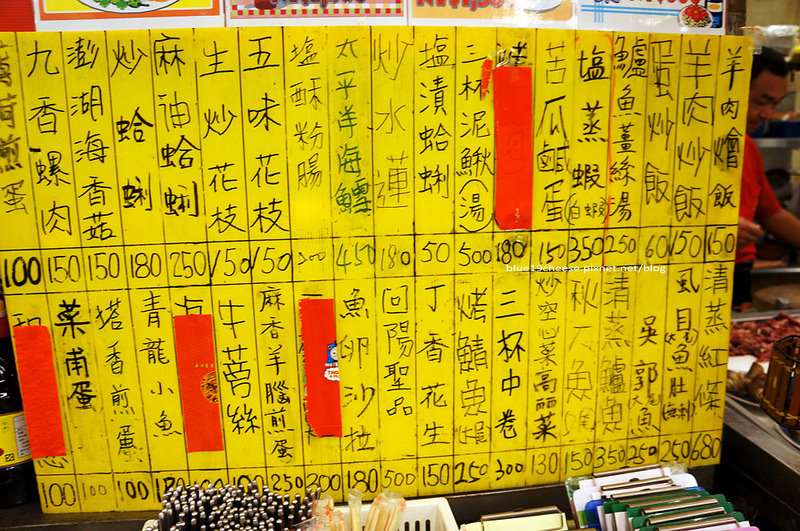 羊肉燴飯 150
羊肉炒飯 150
蛋炒飯 60
鱸魚薑絲湯 250
塩蒸蝦(白蝦) 350
苦瓜鹹蛋 150
180
三杯泥鰍(湯) 500
塩漬蛤蜊 50
炒水蓮 180
太平洋海鱺 450
塩酥粉腸 300
五味花枝 150
生炒花枝 150
麻油蛤蜊 250
炒蛤蜊 180
澎湖海香菇 150
九香螺肉 150
煎蛋 100
清蒸紅條 680
虱目魚肚 250
吳郭魚 250
清蒸鱸魚 350
秋刀魚 150
炒空心菜高丽菜 130
三杯中卷 300
烤鯖魚 250
丁香花生 150
回陽聖品 500
魚卵沙拉 180
300
麻香羊腦煎蛋 250
牛蒡絲 100
青龍小魚 100
塔香煎蛋 100
菜甫蛋 100
100
blue19cheese.pixnet.net/blog